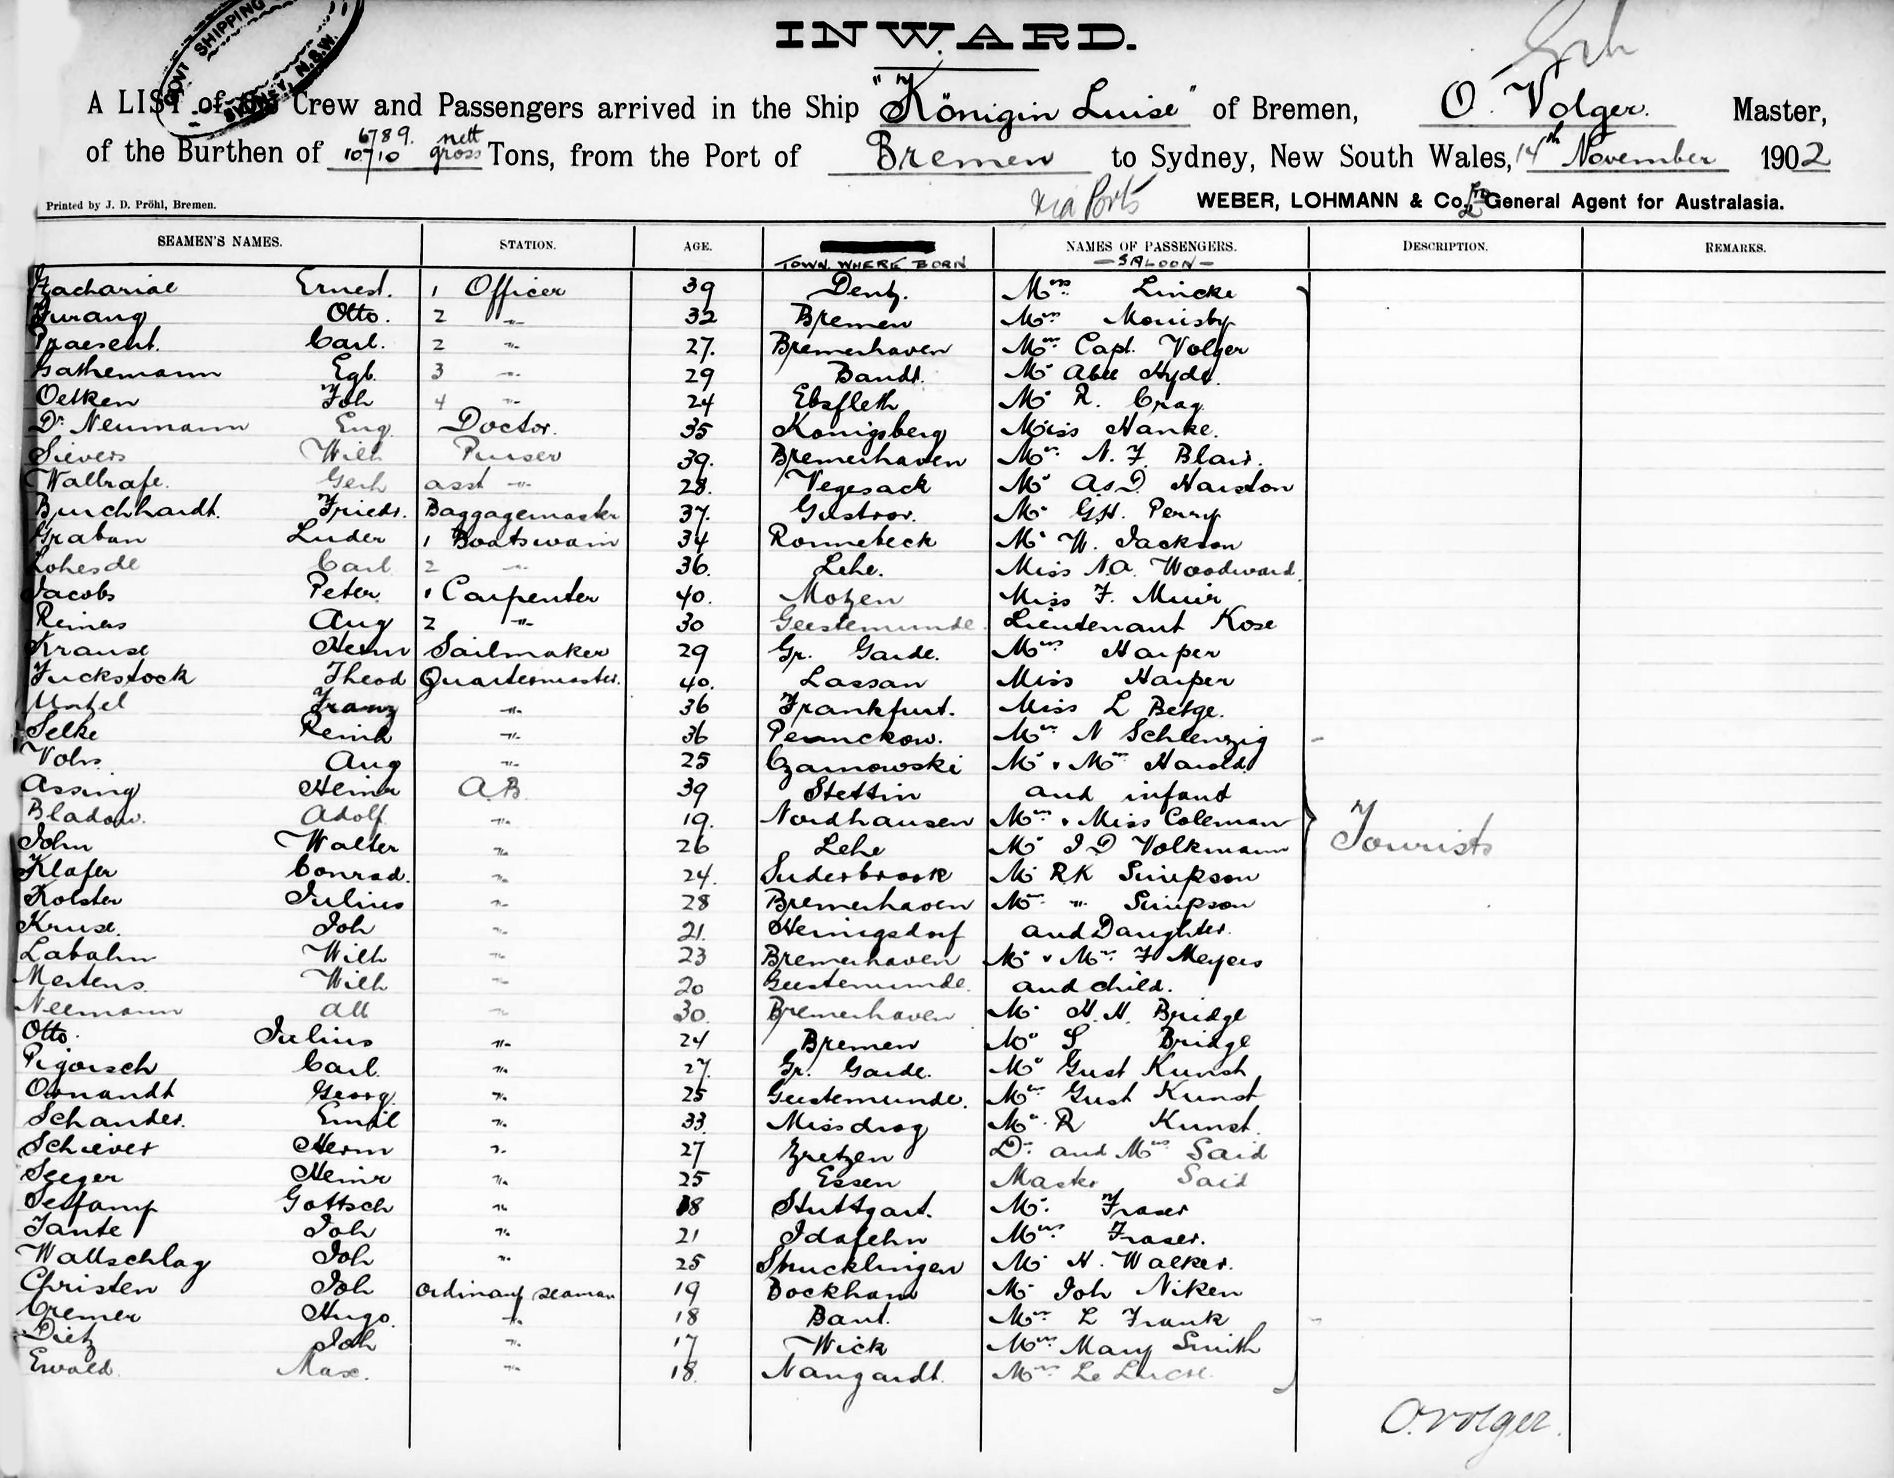 INWARD.
GOVT SHIPPING
SYDNEY, N.S.W.
A LIST of the Crew and Passengers arrived in the Ship "Königin Luise" of Bremen, O. Volger. Master,
of the Burthen of 6789. nett 10710 gross Tons, from the Port of Bremen to Sydney, New South Wales, 14th November 1902
via Ports
WEBER, LOHMANN & Co. General Agent for Australasia.
Printed by J. D. Pröhl, Bremen.
SEAMEN'S NAMES. STATION. AGE. TOWN WHERE BORN NAMES OF PASSENGERS. DESCRIPTION. REMARKS.
-SALOON-
Zachariae Ernest. 1 Officer 39 Deutz. Mrs. Lincke
Otto. 2 -"- 32 Bremen Mrs.
Praesent. Carl. 2 -"- 27. Bremerhaven Mrs. Capt. Volger
Gathemann Egb. 3 -"- 29 Bandt. Mr Abel Hyde.
Oetken Joh 4 -"- 24 Elsfleth Mr R. Crag.
Dr. Neumann Eug. Doctor. 35 Konigsberg Miss Hanke.
Sievers Wilh Purser 39. Bremerhaven Mrs. N. F. Blair.
Wallrafe. Gerh asst -"- 28. Vegesack Mr As. D. Hairston
Burchhardt. Friedr. Baggagemaster 37. Gustrow. Mr G.H. Perry
Graban Luder 1 Boatswain 34 Ronnebeck Mr W. Jackson
Lohesde Carl 2 -"- 36. Lehe. Miss N.A. Woodward.
Jacobs Peter. 1 Carpenter 40. Motzen Miss F. Muir
Reiners Aug 2 -"- 30 Geestemunde. Lieutenant Kose
Krause Herm Sailmaker 29 Gr. Garde. Mrs. Harper
Fuckstock Theod Quartermaster. 40. Lassan Miss Harper
Franz -"- 36 Frankfurt. Miss L Betge.
Selke Reinh -"- 36 Mrs. N Schlenzig
Vohs. Aug -"- 25 Czarnowski Mr & Mrs Harold
Assing Heinr A.B. 39 Stettin and infant
Bladow. Adolf -"- 19. Nordhausen Mrs. & Miss Coleman
John Walter -"- 26 Lehe Mr J D Volkmann Tourists
Klafer Conrad. -"- 24. Suderbrook Mr RK Simpson
Kolster Julius -"- 28 Bremerhaven Mrs. -"- Simpson
Kruse. Joh -"- 21. Henigsdorf and Daughter.
Labahn Wilh -"- 23 Bremerhaven Mr & Mrs. F Meyers
Mertens. Wilh -"- 20 Geestemunde. and child.
Neemann Alb -"- 30. Bremerhaven Mr H. H. Bridge
Otto. Julius -"- 24 Bremen Mr S Bridge
Pigorsch Carl. -"- 27. Gr. Garde. Mr Gust Kunst
Georg. -"- 25 Geestemunde. Mrs. Gust Kunst
Schander. Emil -"- 33. Missdroy Mr. R Kunst.
Schiever Herm -"- 27 Zretzen Dr. and Mrs Said
Seeger Heinr -"- 25 Essen Master Said
Gottsch -"- 18 Stuttgart. Mr. Fraser
Tante Joh -"- 21 Idafehn Mrs. Fraser.
Wallschlag Joh -"- 25 Strucklingen Mr H. Walker.
Christen Joh Ordinary seaman 19 Bockhorn Mr Joh Niken
Cremer Hugo. -"- 18 Bant. Mrs. L Frank
Dietz Joh -"- 17 Wick Mrs. Mary Smith
Ewald. Max. -"- 18. Naugardt. Mrs Le
O. Volger.